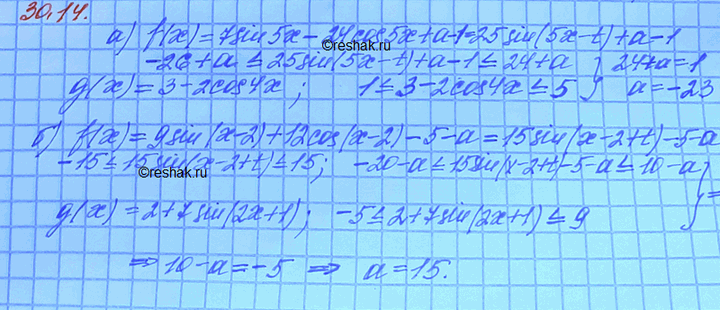 30.14.
а) f(x)=7sin5x-24cos5x+a-1=25sin(5x-t)+a-1
©reshak.ru
-26+a≤25sin(5x-t)+a-1≤24+a } 24+a=1
g(x)=3-2cos4x; 1≤3-2cos4x≤5 } a=-23
б) f(x)=9sin(x-2)+12cos(x-2)-5-a=15sin(x-2+t)-5-a
-15≤15sin(x-2+t)≤15; -20-a≤15sin(x-2+t)-5-a≤10-a
©reshak.ru
g(x)=2+7sin(2x+1); -5≤2+7sin(2x+1)≤9 } =
⇒10-a=-5 ⇒ a=15.